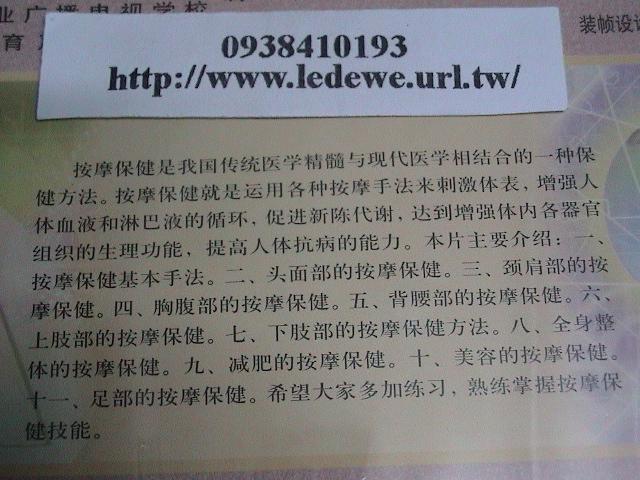 业广播电视学校
育
装帧设计
0938410193
http://www.ledewe.url.tw/
按摩保健是我国传统医学精髓与现代医学相结合的一种保
健方法。按摩保健就是运用各种按摩手法来刺激体表，增强人
体血液和淋巴液的循环，促进新陈代谢，达到增强体内各器官
组织的生理功能，提高人体抗病的能力。本片主要介绍：一、
按摩保健基本手法。二、头面部的按摩保健。三、颈肩部的按
摩保健。四、胸腹部的按摩保健。五、背腰部的按摩保健。六、
上肢部的按摩保健。七、下肢部的按摩保健方法。八、全身整
体的按摩保健。九、减肥的按摩保健。十、美容的按摩保健。
十一、足部的按摩保健。希望大家多加练习，熟练掌握按摩保
健技能。